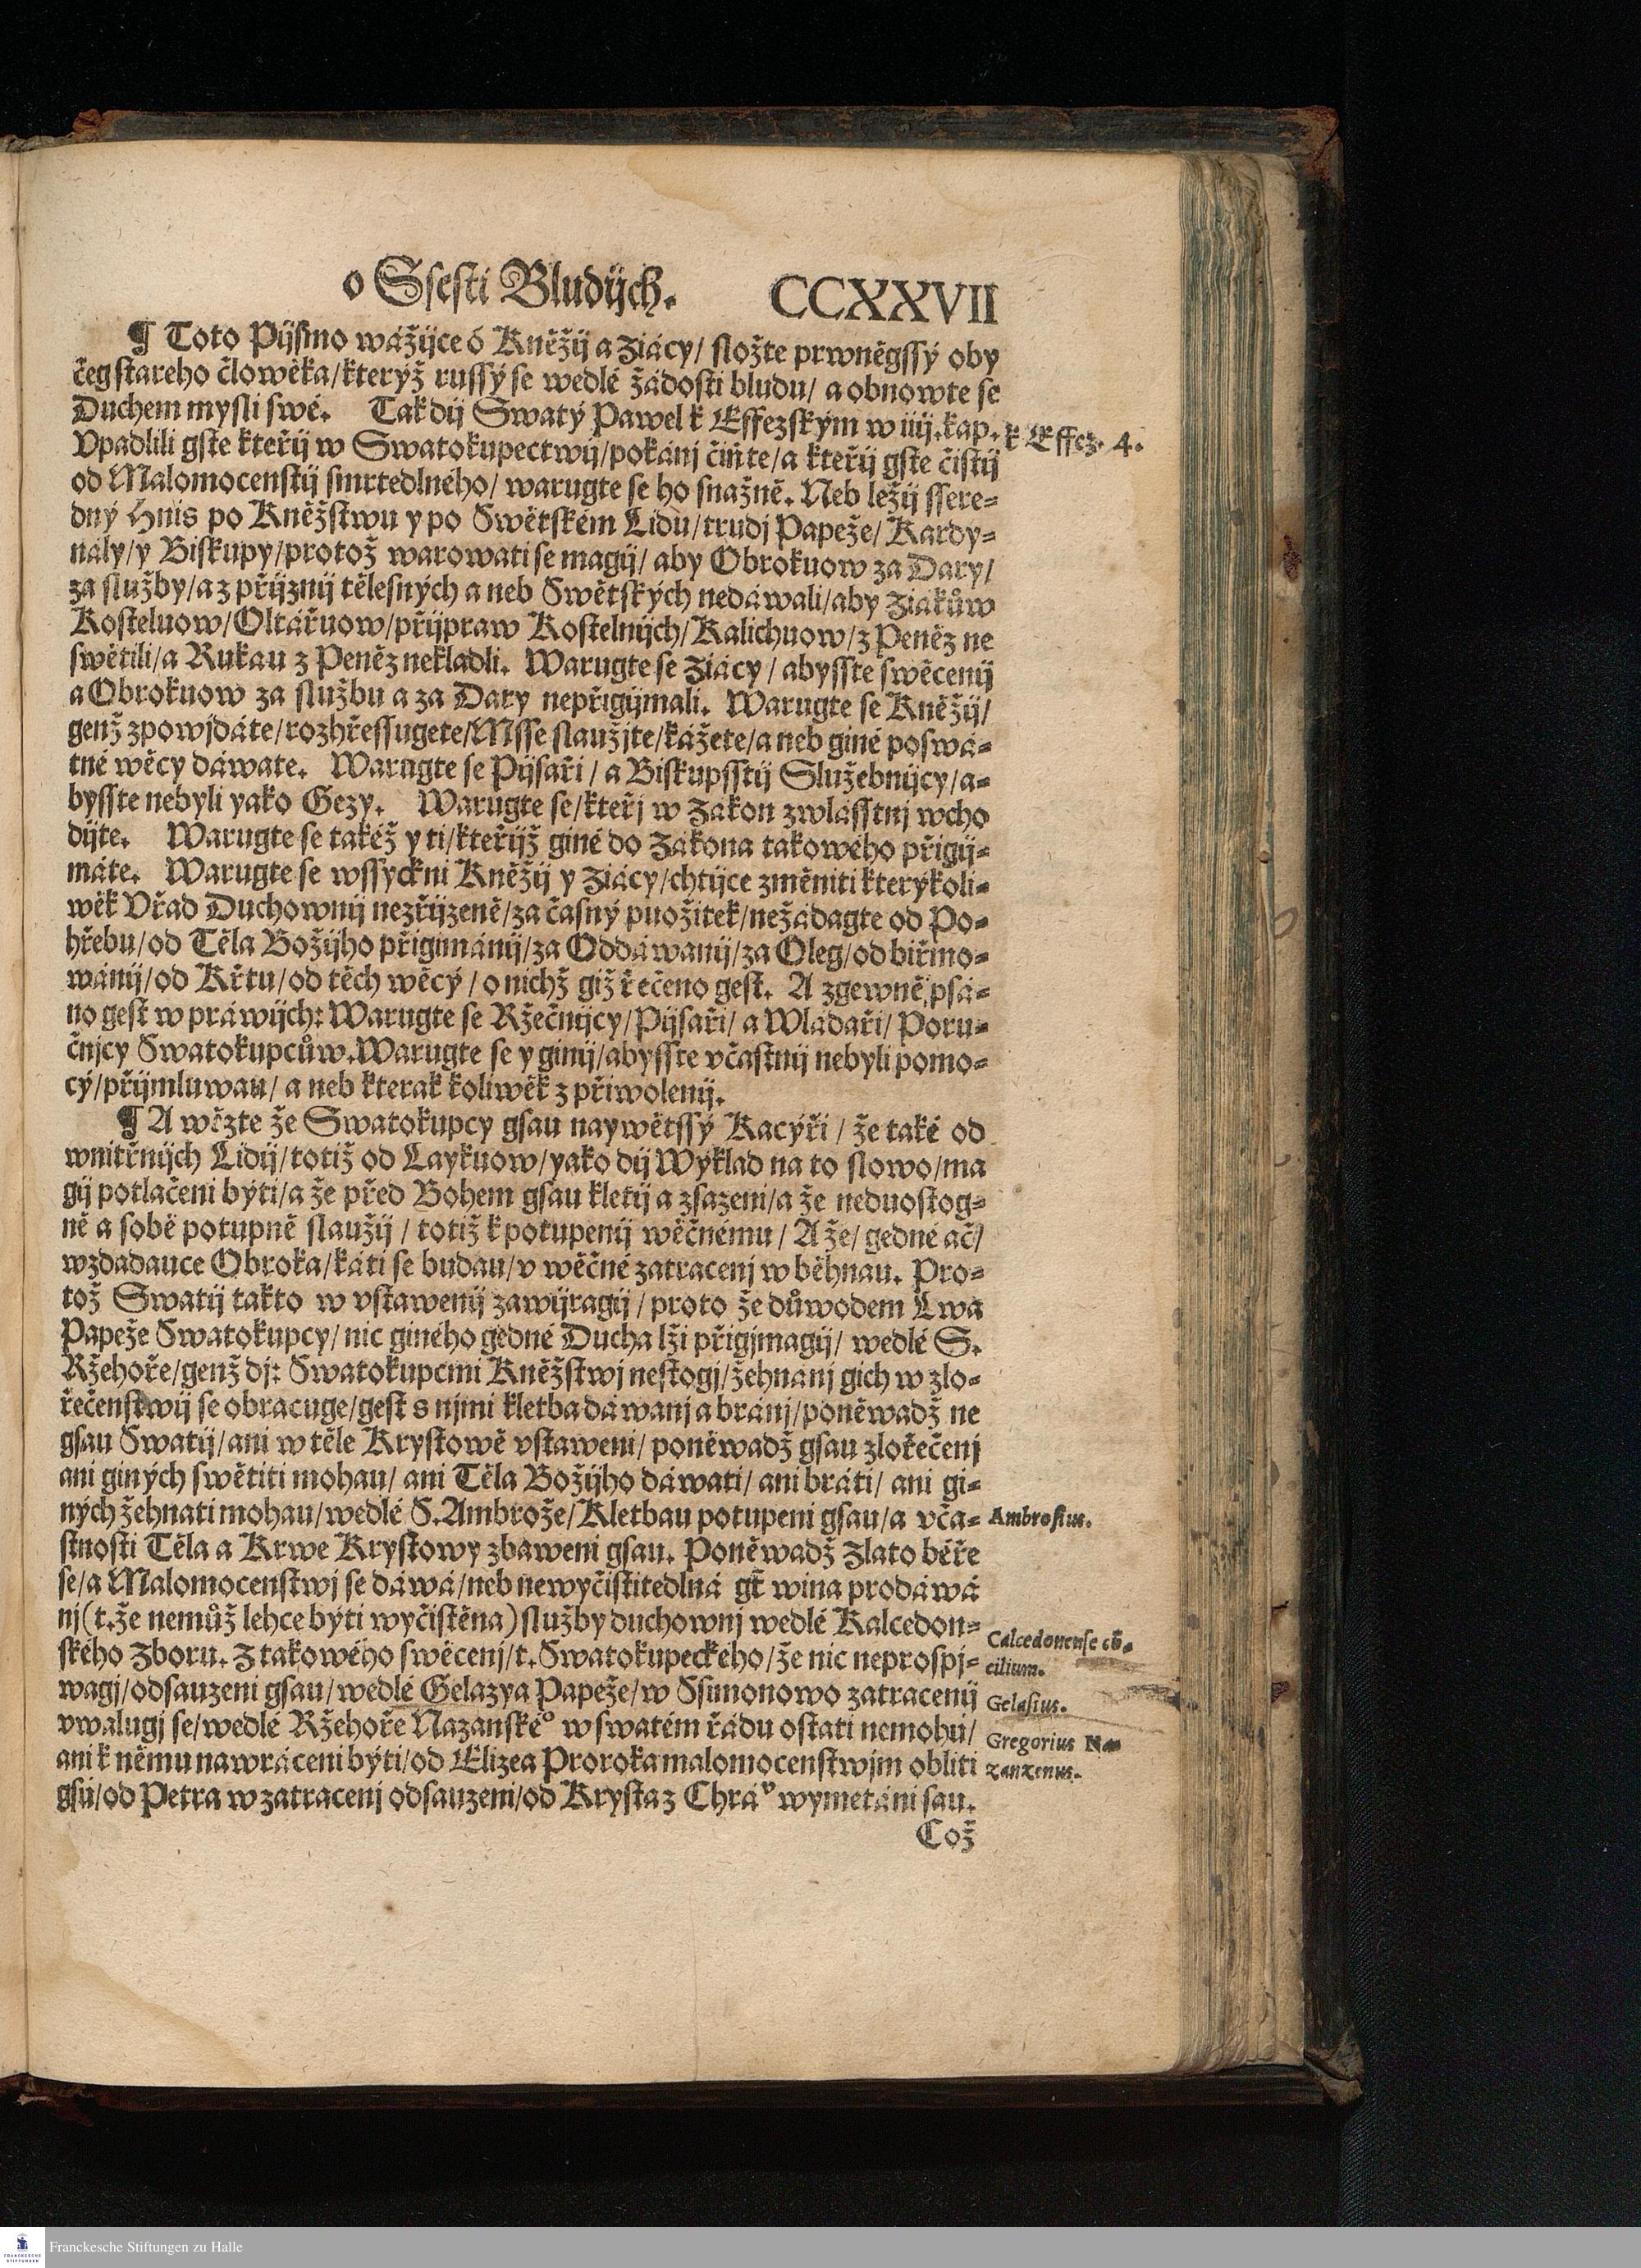 o Ssesti Bludijch. CCXXVII
¶ Toto Pijsmo wážijce ó Kněžij a Žiácy/ složte prwněgssý oby
čeg stareho člowěka/kterýž russý se wedlé žádosti bludu/ a obnowte se
Duchem mysli swé. Tak dij Swatý Pawel k Effezským w iiij.kap.
k Effez. 4.
Vpadlili gste kteřij w Swatokupectwij/pokánj čiňte/a kteřij gste čistij
od Malomocenstij smrtedlného/ warugte se ho snažně. Neb ležij ssere=
dný Hnis po Kněžstwu y po Swětském Lidu/trudj Papeže/ Kardy=
nály/y Biskupy/protož warowati se magij/ aby Obrokuow za Dary/
za služby/a z přijznij tělesných a neb Swětských nedáwali/aby Žiákůw
Kosteluow/Oltářuow/přijpraw Kostelnijch/Kalichuow/z Peněz ne
swětili/a Rukau z Peněz nekladli. Warugte se Žiácy/ abysste swěcenij
a Obrokuow za službu a za Dary nepřigijmali. Warugte se Kněžij/
genž zpowjdáte/rozhřessugete/Msse slaužjte/kážete/a neb giné poswá=
tné wěcy dáwate. Warugte se Pijsaři/ a Biskupsstij Služebnijcy/a=
bysste nebyli yako Gezy. Warugte se/kteřj w Zakon zwlásstnj wcho
dijte. Warugte se takéž y ti/kteřijž giné do Zákona takowého přigij=
máte. Warugte se wssyckni Kněžij y Žiácy/chtijce změniti kterýkoli=
wěk Vřad Duchownij nezřijzeně/za časný puožitek/nežádagte od Po=
hřebu/od Těla Božijho přigimánij/za Oddáwanij/za Oleg/od biřmo=
wánij/od Křtu/od těch wěcý/o nichž giž řečeno gest. A zgewně psá=
no gest w práwijch: Warugte se Ržečnijcy/Pijsaři/ a Wladaři/ Poru=
čnjcy Swatokupcůw. Warugte se y ginij/abysste včastnij nebyli pomo=
cý/přijmluwau/ a neb kterak koliwěk z přiwolenij.
¶ A wězte že Swatokupcy gsau naywětssý Kacýři/ že také od
wnitřnijch Lidij/totiž od Laykuow/yako dij Wýklad na to slowo/ma
gij potlačeni býti/a že před Bohem gsau kletij a zsazeni/a že neduostog=
ně a sobě potupně slaužij/ totiž k potupenij wěčnému/ A že/ gedné ač/
wzdadauce Obroka/káti se budau/v wěčné zatracenj w běhnau. Pro=
tož Swatij takto w vstawenij zawijragij/proto že důwodem Lwa
Papeže Swatokupcy/ nic giného gedné Ducha lži přigjmagij/ wedlé S.
Ržehoře/genž dj: Swatokupcmi Kněžstwj nestogj/žehnánj gich w zlo=
řečenstwij se obracuge/gest s njmi kletba dáwanj a bránj/poněwadž ne
gsau Swatij/ani w těle Krystowě vstaweni/ poněwadž gsau zlořečenj
ani giných swětiti mohau/ ani Těla Božijho dáwati/ ani bráti/ ani gi=
ných žehnati mohau/wedlé S. Ambrože/Kletbau potupeni gsau/a vča=
Ambrosius.
stnosti Těla a Krwe Krystowy zbaweni gsau. Poněwadž Zlato béře
se/a Malomocenstwj se dáwá/neb newyčistitedlná gt̄ wina prodáwá
nj (t. že nemůž lehce býti wyčistěna) služby duchownj wedlé Kalcedon=
ského Zboru. Z takowého swěcenj/t. Swatokupeckého/že nic neprospj=
Calcedonense cõ=
cilium.
wagj/odsauzeni gsau/wedlé Gelazya Papeže/w Ssimonowo zatracenij
Gelasius.
vwalugj se/wedlé Ržehoře Nazanskéº w swatém řádu ostati nemohú/
Gregorius Na=
ani k němu nawráceni býti/od Elizea Proroka malomocenstwjm obliti
zanzenus.
gsú/od Petra w zatracenj odsauzeni/od Krysta z Chráᵛ wymetáni sau.
Což
Franckesche Stiftungen zu Halle